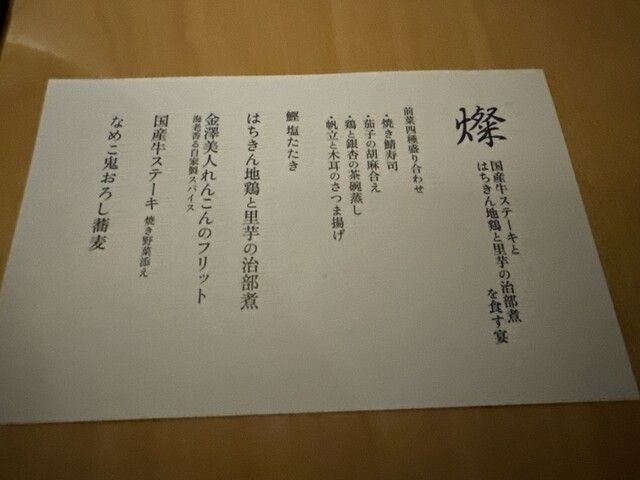 燦
国産牛ステーキと
はちきん地鶏と里芋の治部煮
を食す宴
前菜四種盛り合わせ
・焼き鯖寿司
・茄子の胡麻合え
・鶏と銀杏の茶碗蒸し
・帆立と木耳のさつま揚げ
鰹 塩たたき
はちきん地鶏と里芋の治部煮
金澤美人れんこんのフリット
海老香る自家製スパイス
国産牛ステーキ 焼き野菜添え
なめこ鬼おろし蕎麦